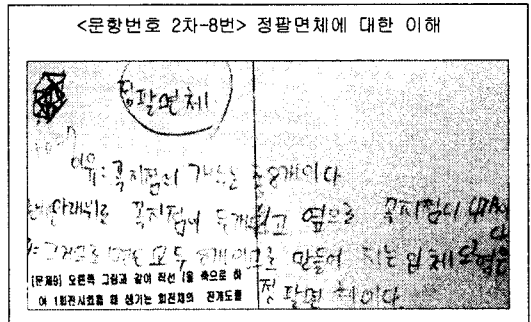 <문항번호 2차-8번> 정팔면체에 대한 이해
정팔면체
이유: 꼭지점의 개수는 총8개이다
아래위로 꼭지점이 두개있고 옆으로 꼭지점이
모두 8개이므로 만들어 지는 입체도형은
[문제9] 오른쪽 그림과 같이 직선 l을 축으로 하
정팔면체이다
여 1회전시켰을 때 생기는 회전체의 전개도를